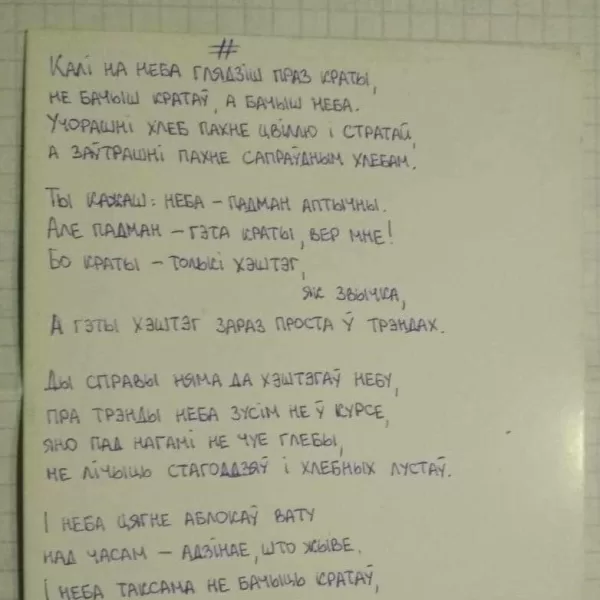 #
Калі на неба глядзіш праз краты,
не бачыш кратаў, а бачыш неба.
Учорашні хлеб пахне цвіллю і стратай,
а заўтрашні пахне сапраўдным хлебам.
Ты кажаш: неба – падман аптычны.
Але падман – гэта краты, вер мне!
Бо краты – толькі хэштэг,
як звычка,
А гэты хэштэг зараз проста ў трэндах.
Ды справы няма да хэштэгаў небу,
пра трэнды неба зусім не ў курсе,
яно пад нагамі не чуе глебы,
не лічыць стагоддзяў і хлебных лустаў.
І неба цягне аблокаў вату
над часам – адзінае, што жыве.
І неба таксама не бачыць кратаў,